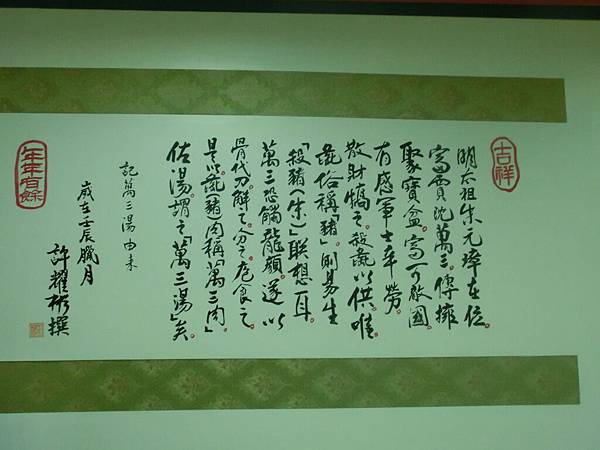 吉祥
明太祖朱元璋在位。
富賈沈萬三。傳擁
聚寶盆。富可敵國。
有感軍士辛勞。
散財犒之。殺彘以供。唯
彘俗稱「豬」則易生
「殺豬(朱)」聯想耳。
萬三恐觸龍顏。遂以
骨代刀。解之。分庖食之。
是以彘(豬)肉稱「萬三肉」
佐湯謂之「萬三湯」矣。
記萬三湯由來
歲在壬辰臘月
許耀彬撰
年年有餘